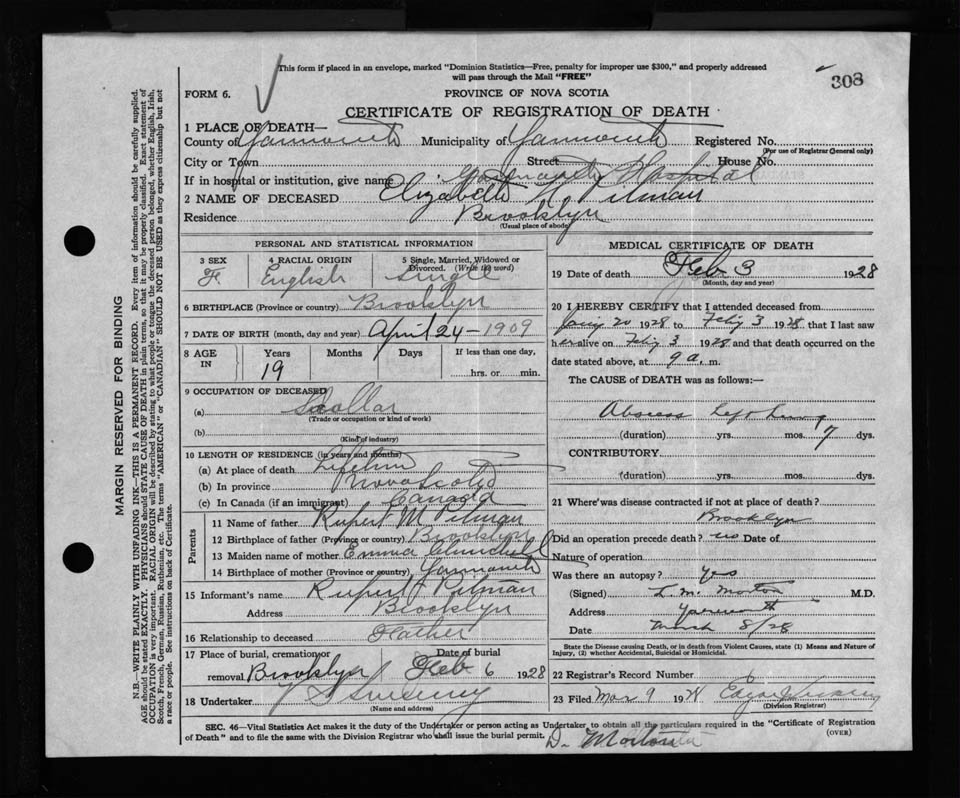 This form if placed in an envelope, marked "Dominion Statistics—Free, penalty for improper use $300," and properly addressed
will pass through the Mail "FREE"
308
FORM 6.
PROVINCE OF NOVA SCOTIA
CERTIFICATE OF REGISTRATION OF DEATH
1 PLACE OF DEATH—
County of Yarmouth Municipality of Yarmouth Registered No.
(For use of Registrar General only)
City or Town Street House No.
If in hospital or institution, give name Yarmouth Hospital
2 NAME OF DECEASED Elizabeth Pitman
Residence Brooklyn
(Usual place of abode)
PERSONAL AND STATISTICAL INFORMATION
3 SEX 4 RACIAL ORIGIN 5 Single, Married, Widowed or
Divorced. (Write the word)
F. English Single
6 BIRTHPLACE (Province or country) Brooklyn
7 DATE OF BIRTH (month, day and year) April 24-1909
8 AGE IN Years Months Days If less than one day,
19 hrs. or min.
9 OCCUPATION OF DECEASED
(a) Scollar
(Trade or occupation or kind of work)
(b)
(Kind of industry)
10 LENGTH OF RESIDENCE (in years and months)
(a) At place of death Lifetime
(b) In province Nova Scotia
(c) In Canada (if an immigrant) Canada
Parents
11 Name of father Rupert M Pitman
12 Birthplace of father (Province or country) Brooklyn
13 Maiden name of mother Emma Churchill
14 Birthplace of mother (Province or country) Yarmouth
15 Informant's name Rupert Pitman
Address Brooklyn
16 Relationship to deceased Father
17 Place of burial, cremation or Date of burial
removal Brooklyn Feb 6 1928
18 Undertaker Sweeney
(Name and address)
MEDICAL CERTIFICATE OF DEATH
19 Date of death Feb 3 1928
(Month, day and year)
20 I HEREBY CERTIFY that I attended deceased from
20 1928 to 3 1928 that I last saw
her alive on 3 1928 and that death occurred on the
date stated above, at 9 a. m.
The CAUSE of DEATH was as follows:—
Abscess Left Lung
(duration) yrs. mos. 7 dys.
CONTRIBUTORY
(duration) yrs. mos. dys.
21 Where was disease contracted if not at place of death?
Brooklyn
Did an operation precede death? no Date of
Nature of operation
Was there an autopsy? Yes
(Signed) L. M. Morton M.D.
Address Yarmouth
Date March 8/28
State the Disease causing Death, or in death from Violent Causes, state (1) Means and Nature of
Injury, (2) whether Accidental, Suicidal or Homicidal.
22 Registrar's Record Number
23 Filed Mar 9 1928
(Division Registrar)
SEC. 46—Vital Statistics Act makes it the duty of the Undertaker or person acting as Undertaker to obtain all the particulars required in the "Certificate of Registration
of Death" and to file the same with the Division Registrar who shall issue the burial permit.
(OVER)
MARGIN RESERVED FOR BINDING
N.B.—WRITE PLAINLY WITH UNFADING INK—THIS IS A PERMANENT RECORD. Every item of information should be carefully supplied.
AGE should be stated EXACTLY. PHYSICIANS should STATE CAUSE OF DEATH in plain terms, so that it may be properly classified. Exact statement of
OCCUPATION is very important. RACIAL ORIGIN will be described by stating to what people or tongue the deceased person belonged, whether English, Irish,
Scotch, French, German, Russian, Ruthenian, etc. The terms "AMERICAN" or "CANADIAN" SHOULD NOT BE USED as they express citizenship but not
a race or people. See instructions on back of Certificate.